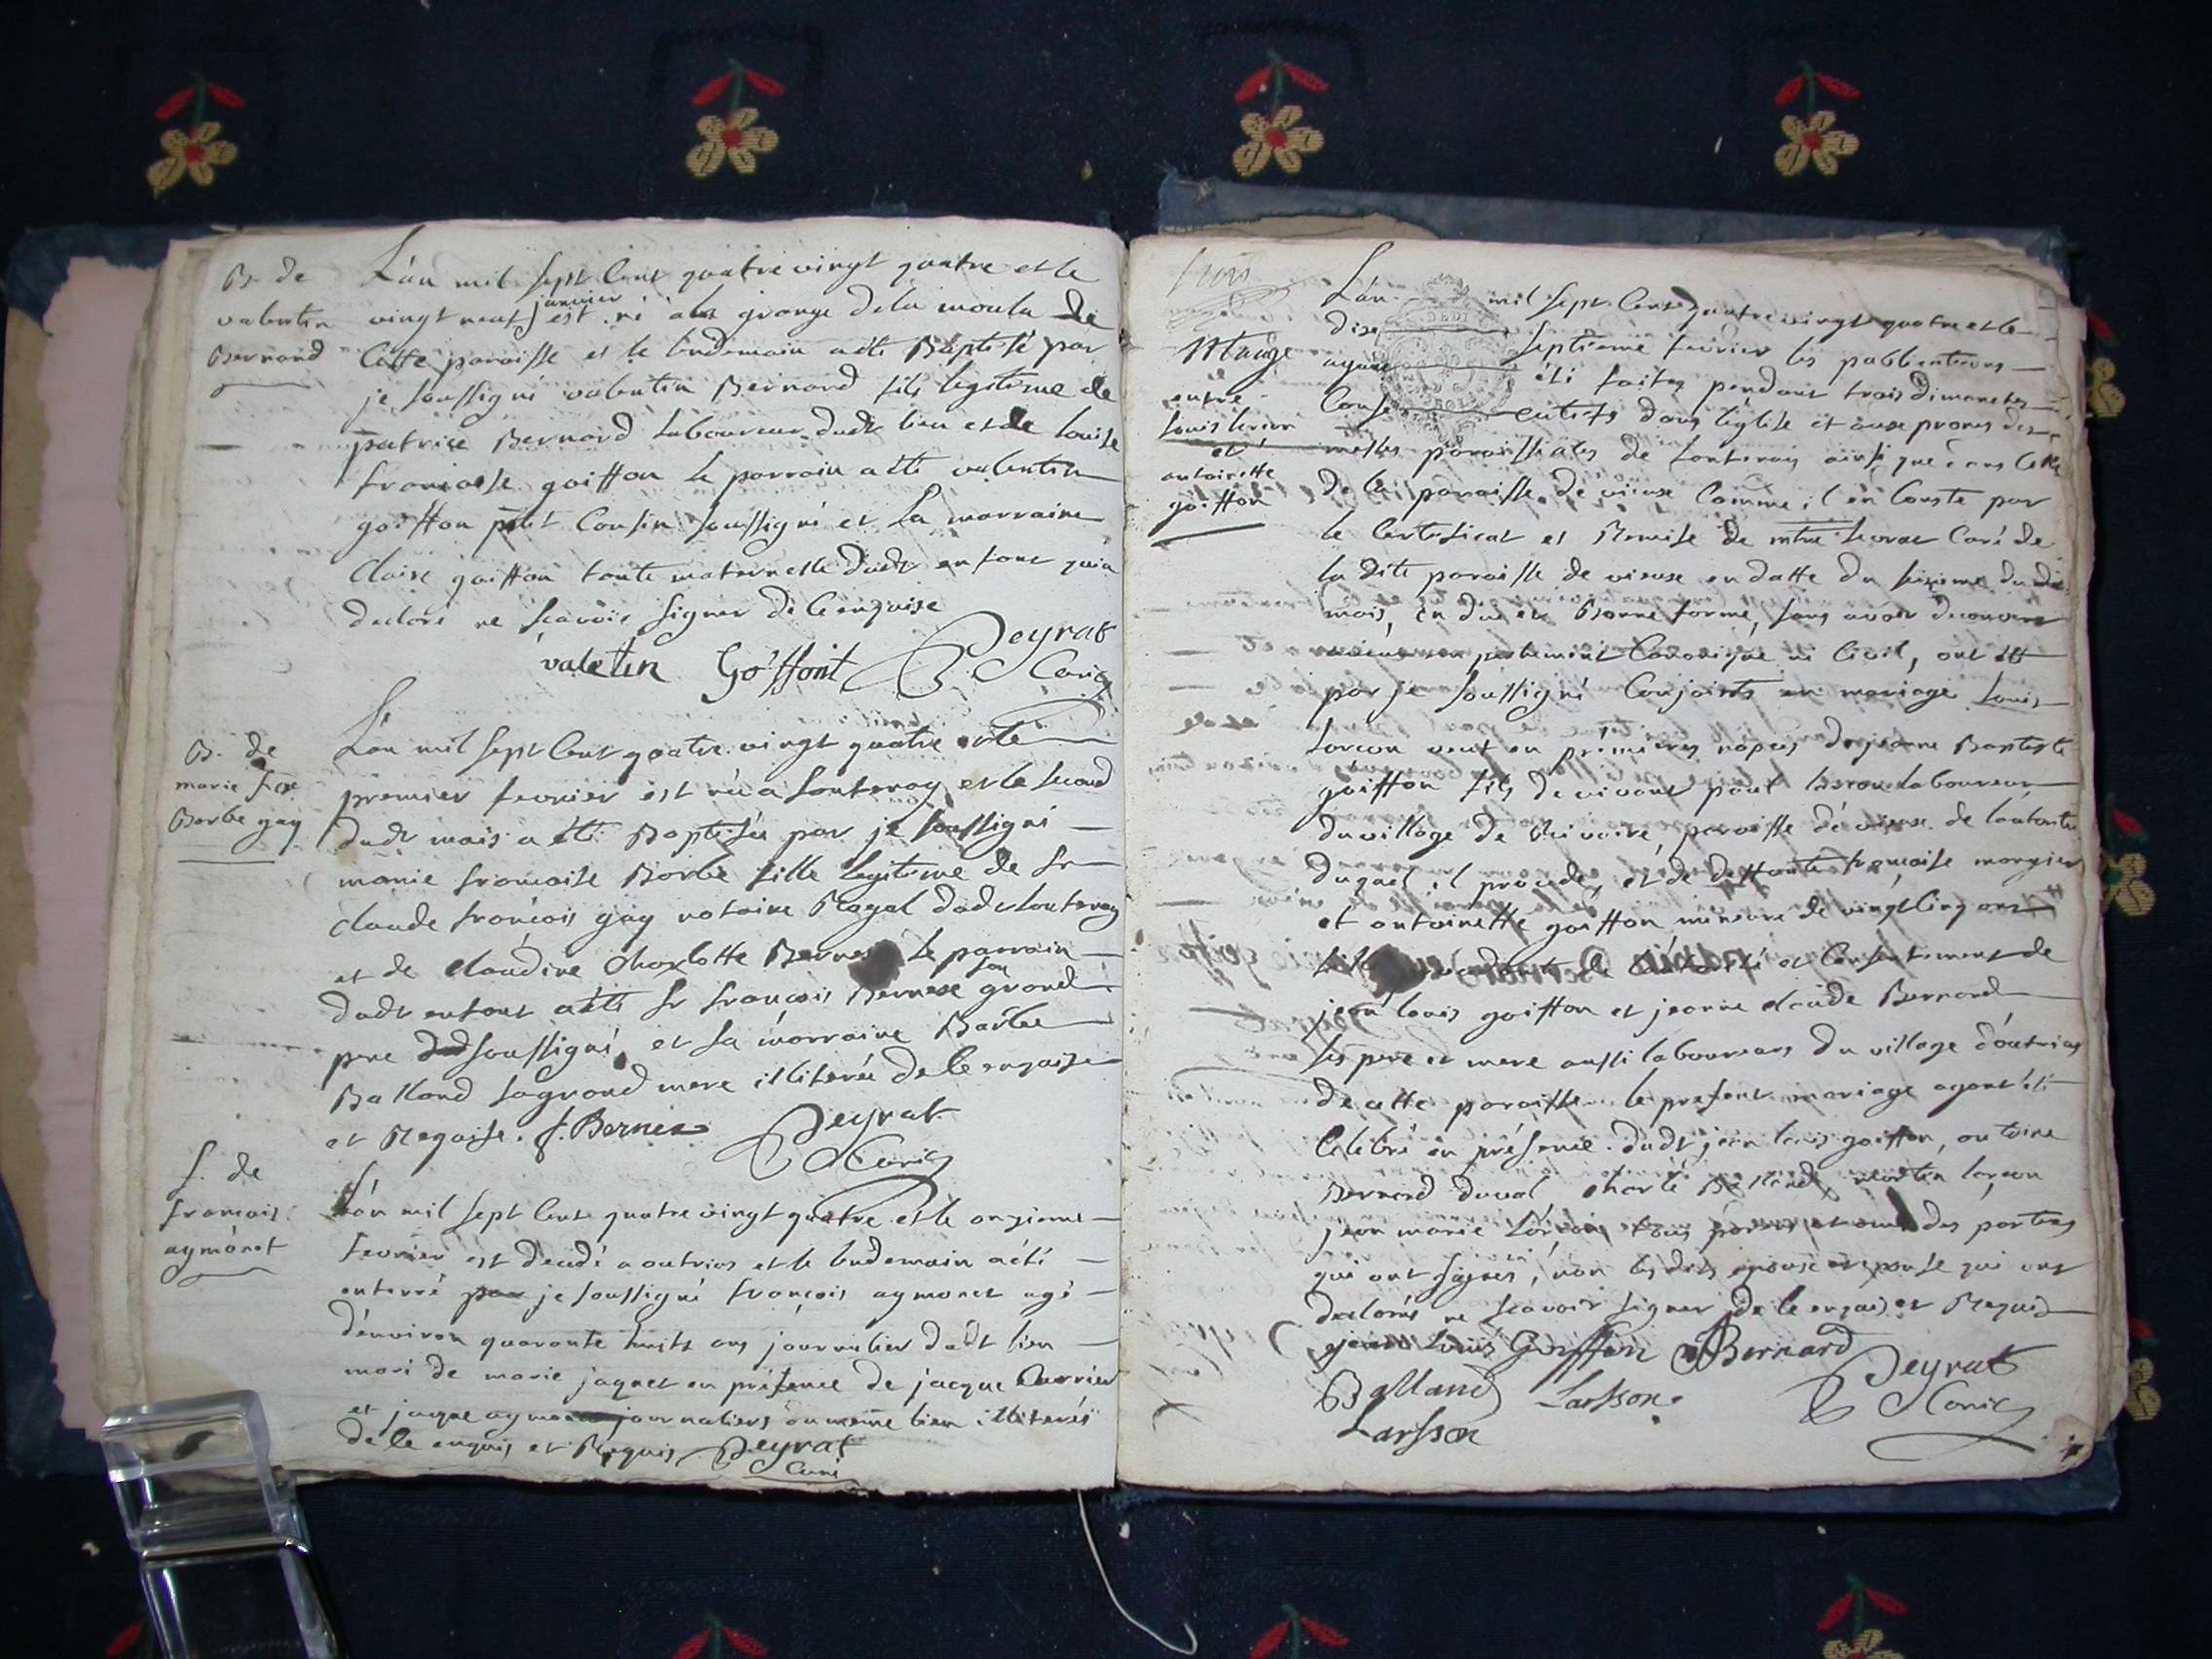 B. de
valentin
Bernand
L'an mil sept Cent quatre vingt quatre et le
vingt neuf janvier est né a la grange de la moula de
Cette paroisse et le lendemain a été Baptisé par
je soussigné valentin Bernand fils legitime de
patrice Bernand laboureur dudt lieu et de louise
françoise goiffon le parrain a été valentin
goiffon petit Cousin soussigné et La marraine
Claire goiffon tante maternelle dudt enfant qui a
declaré ne scavoir signer de ce enquise
valetin Goiffont Peyrat
Curé
B. de
marie fse
Barbe gay
L'an mil sept Cent quatre vingt quatre et le
premier fevrier est née a songeray et le second
dudt mois a été Baptisée par je soussigné
marie françoise Barbe fille legitime de sr
claude françois gay notaire Royal dudt
et de claudine charlotte Bernes le parrain
dudt enfant a été sr françois Bernese son grand
pere soussigné, et sa marraine Barbe
Balland sa grand mere illiterée de ce enquise
et Requise. f. Bernes Peyrat
Curé
S. de
françois
aymonet
L'an mil sept Cent quatre vingt quatre et le onzieme
fevrier est decedé a outrias et le lendemain a été
enterré par je soussigné françois aymonet agé
d'environ quarante huits ans journalier dudt lieu
mari de marie jaquet en présence de jacque
et jacque journaliers du meme lieu illiterés
de ce enquis et Requis Peyrat
Curé
Mariage
entre
Louis
et
antoinette
goiffon
L'an mil sept Cent quatre vingt quatre et le
dixe septieme fevrier les publications
ayant été faites pendant trois dimanches
Conse cutifs dans l'église et aux prones des
messes paroissiales de ainsi que dans Celle
de la paroisse de vieuse Comme il en Conste par
le Certificat et Remise de mtre Curé de
la dite paroisse de vieuse en datte du seizieme dudt
mois, en due et Bonne forme, sans avoir decouvert
aucun empechement Canonique ni Civil, ont été
par je soussigné Conjoints en mariage Louis
Larçon veuf en premieres nopces de jeanne Baptiste
goiffon fils de vivant paul laboureur
du village de paroisse de vieuse de l'autorité
duquel il procede, et de deffunte françoise
et antoinette goiffon mineure de vingt Cinq ans
de l'autorité et Consentement de
jean louis goiffon et jeanne claude Bernand
ses pere et mere aussi laboureurs du village d'outrias
de cette paroisse le present mariage ayant été
Celebré en présence dudt jean louis goiffon, antoine
Bernand duval, charle Balland, martin larçon
jean marie Larçon tous parens et amis des parties
qui ont signés, non les dits epoux et epouse qui ont
declarés ne scavoir signer de ce enquis et Requis
jean louis Goiffon Bernard
Balland Larsson Peyrat
Larsson Curé